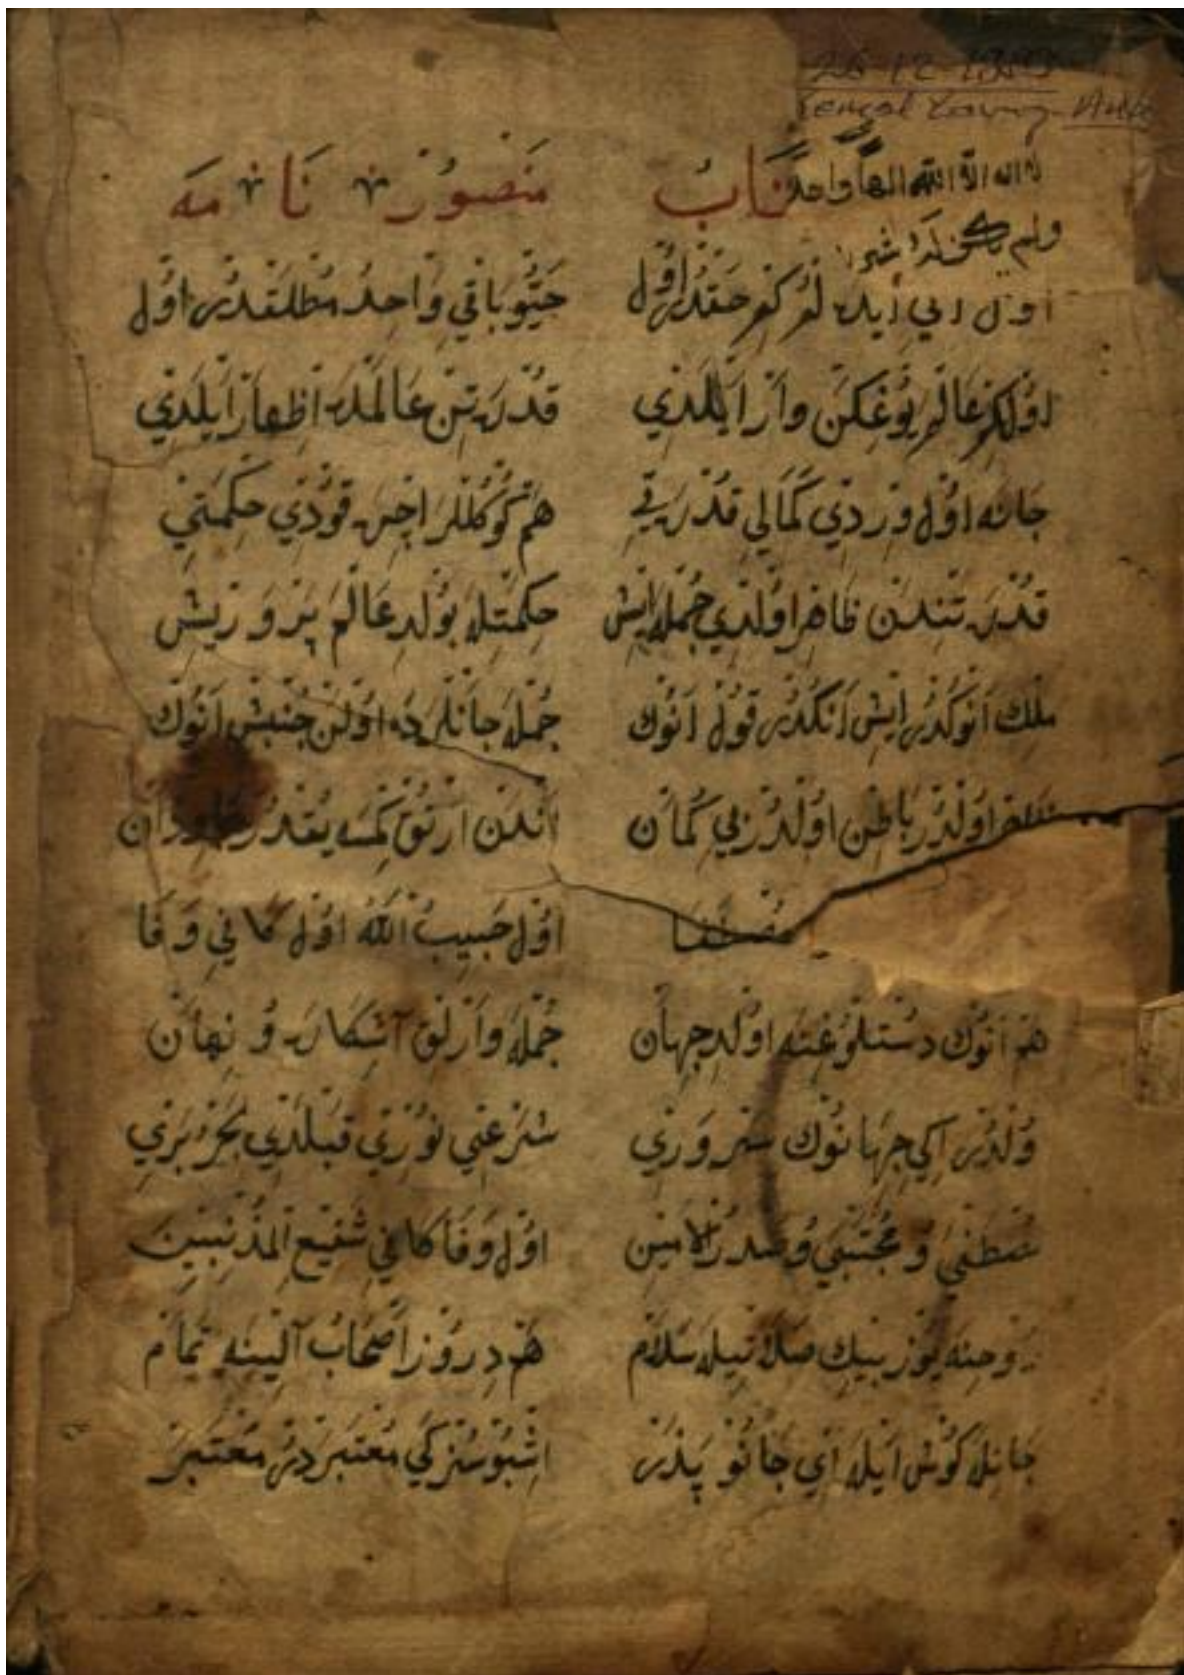 25-12-1953
لا اله الا الله الها واحدا
كتاب منصور نامه
ولم يكن له
اول حقدر اول حيّو باقي واحد مطلقدر اول
اولكم عالم يوغكن وار ايلدي قدرتن عالمده اظهار ايلدي
جانه اول وردي كمالي قدرتي هم كوكللر اچره قودي حكمتي
قدرتندن ظاهر اولدي جمله ايش حكمتله بولدي عالم پرورش
ملك انوكدر ايش انكدر قول انوك جمله جانلرده اولن جنبش انوك
ظاهر اولدر باطن اولدر بي كمان اندن ارتق كمسه يقدر
مصطفا اول حبيب الله اول كاني وفا
هم انوك دستلوغنه اولدي جهان جمله وارلق آشكاره و نهان
اولدر ايكي جهانوك سروري شرعني نوري قپلدي بحر بري
مصطفي و مجتبي و صدر الامين اول وفا كاني شفيع المذنبين
روحنه يوز بيك صلاتيله سلام هم دروز اصحاب آلينه تمام
جانله كوش ايله اي جانو پدر اشبو سز كي معتبر در معتبر